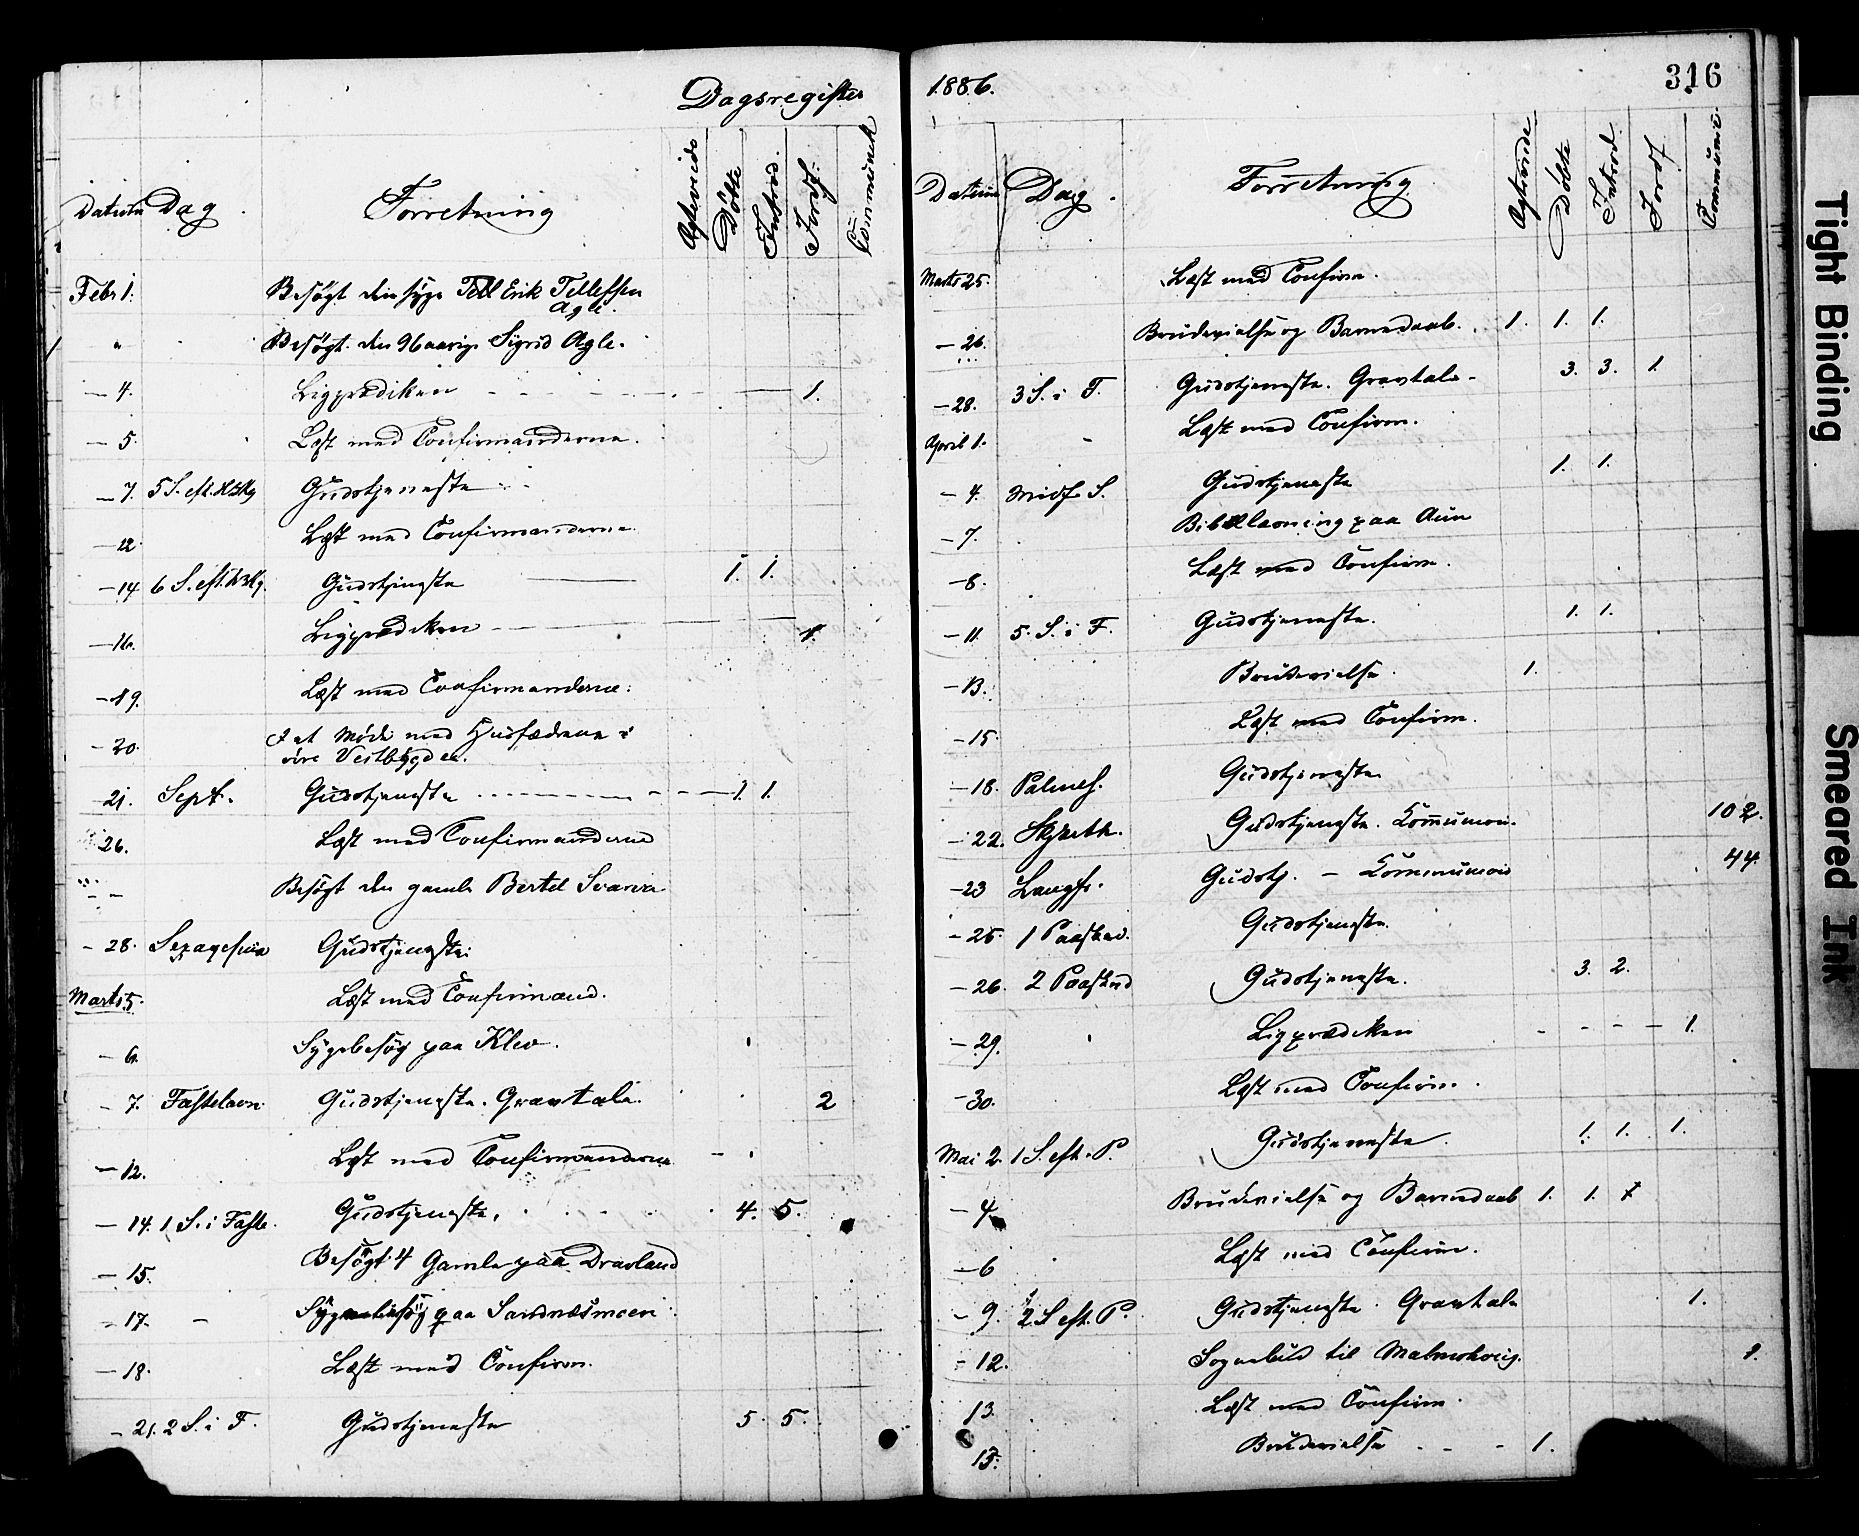 Dagsregister
Datum Dag. Forretning Døbte Introd. Jordf.
Febr 1. Besøgt den syge Erik Tellefsen
Agle.
" Besøgt den 96 aarige Sigrid Agle.
— 4. Ligprædiken 1.
— 5. Læst med Confirmanderne.
— 7. 5 S. eft. Gudstjeneste
— 12. Læst med Confirmanderne
— 14 6 S. eft. Gudstjeneste 1. 1.
— 16. Ligprædiken 1.
— 19. Læst med Confirmanderne.
— 20. I et Møde med Husfædrene i
øvre Vestbygden.
— 21. Sept. Gudstjeneste 1. 1.
26. Læst med Confirmanderne
— Besøgt den gamle Bertel
— 28. Sexagesima Gudstjeneste.
Marts 5. Læst med Confirmand.
— 6. Sygebesøg paa Klev.
— 7. Fastelavn Gudstjeneste. Gravtale. 2
— 12. Læst med Confirmanderne
— 14. 1 S. i Faste. Gudstjeneste. 4. 5.
— 15. Besøgt 4 Gamle paa Dravland
— 17. Sygebesøg paa Sandnæsmoen
— 18. Læst med Confirm.
— 21. 2 S. i F. Gudstjeneste 5. 5.
1886. 316
Datum Dag. Forretning Døbte Introd. Jordf.
Marts 25. Læst med Confirm.
— 26. Brudevielse og Barnedaab. 1. 1. 1.
— 28. 3 S. i F. Gudstjeneste. Gravtale 3. 3. 1.
April 1. Læst med Confirm.
— 4. Midf. S. Gudstjeneste 1. 1.
— 7. Bibellæsning paa Aun
— 8. Læst med Confirm.
— 11. 5. S. i F. Gudstjeneste. 1. 1.
— 13. Brudevielse 1.
— 15. Læst med Confirm.
— 18. Palmes. Gudstjeneste
— 22. Skjærth. Gudstjeneste. Kommunion. 102.
— 23 Langfr. Gudstj. — Kommunion 44.
— 25. 1 Paaskед. Gudstjeneste.
— 26. 2 Paasked Gudstjeneste. 3. 2.
— 29. Ligprædiken 1.
— 30. Læst med Confirm.
Mai 2. 1 S. eft. P. Gudstjeneste. 1. 1. 1.
— 4. Brudevielse og Barnedaab 1. 1. 1
— 6 Læst med Confirm.
— 9. 2 S eft. P. Gudstjeneste. Gravtale 1.
— 12. Sognebud til 1.
13. Læst med Confirm.
15. Brudevielse 1.
Tight Binding
Smeared Ink